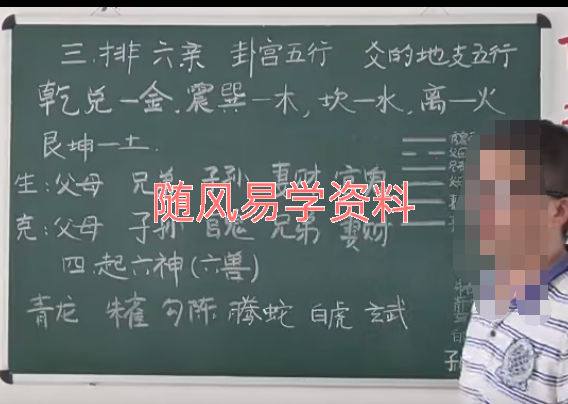 三.排六亲 卦宫五行 爻的地支五行
乾兑一金.震巽一木,坎一水,离一火
艮坤一土.
生:父母 兄弟 子孙 妻财 官鬼
随风易学资料
克:父母 子孙 官鬼 兄弟 妻财
四.起六神(六兽)
青龙 朱雀 勾陈 腾蛇 白虎 玄武
子